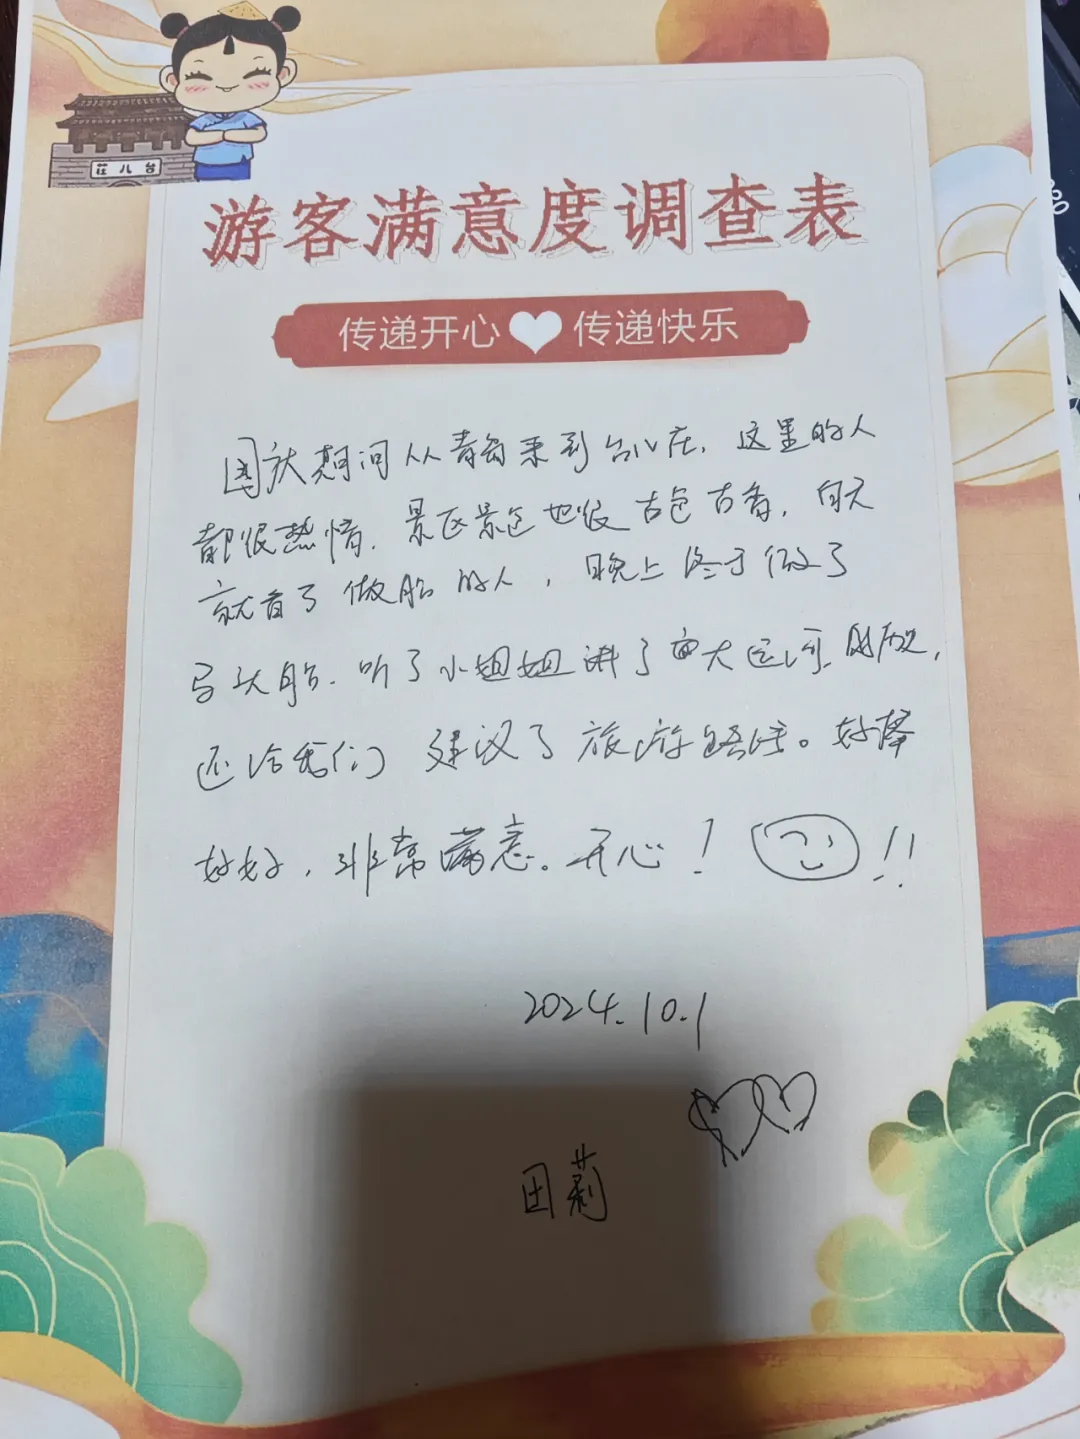 莊儿台
游客满意度调查表
传递开心 传递快乐
国庆期间从青岛来到台儿庄，这里的人
都很热情，景区景色也很古色古香，白天
就看了做船的人，晚上终于做了
马头船，听了小姐姐讲了大运河的历史，
还给我们建议了旅游路线。好棒
好好，非常满意。开心！ !!
2024.10.1
田莉